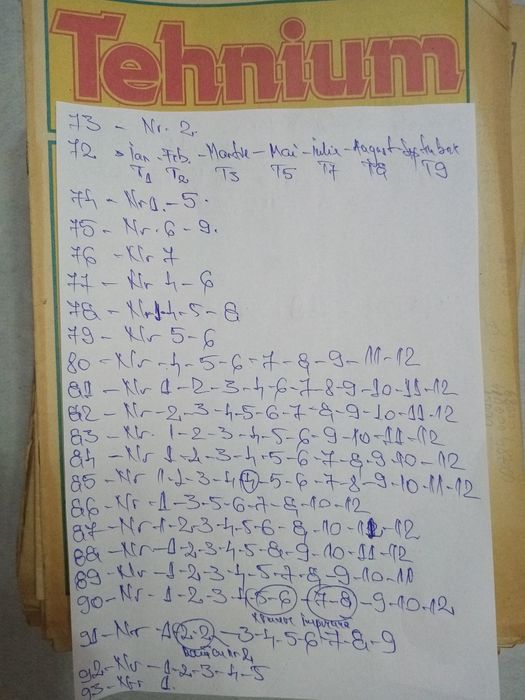 Tehnium
73 - Nr. 2.
72 - Ian. Feb. - Martie - Mai - iulie - August - Septembrie
T1 T2 T3 T5 T7 T8 T9
74 - Nr 1. - 5.
75 - Nr. 6 - 9.
76 - Nr 7
77 - Nr 4 - 6
78 - Nr 1-4-5-8
79 - Nr 5-6
80 - Nr - 4-5-6-7-8-9-11-12
81 - Nr 1-2-3-4-6-7-8-9-10-11-12
82 - Nr -2-3-4-5-6-7-8-9-10-11-12
83 - Nr. 1-2-3-4-5-6-9-10-11-12
84 - Nr 1-2-3-4-5-6-7-8-9-10-12
85 - Nr 1-2-3-4-4-5-6-7-8-9-10-11-12
86 - Nr -1-3-5-6-7-8-10-12
87 - Nr -1-2-3-4-5-6-8-10-11-12
88 - Nr -1-2-3-4-5-8-9-10-11-12
89 - Nr -1-2-3-4-5-7-8-9-10-11
90 - Nr -1-2-3-4-5-6-7-8-9-10-12
91 - Nr -1-2-2-3-4-5-6-7-8-9
92 - Nr -1-2-3-4-5
93 - Nr 1.